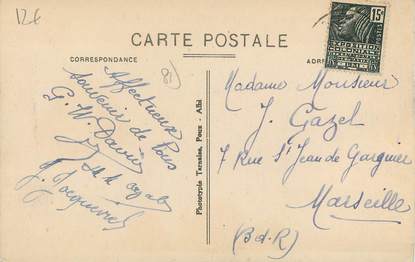 12€
CARTE POSTALE
CORRESPONDANCE
ADR
15c
EXPOSITION
COLONIALE
INTERNATIONALE
PARIS 1931
81
Affectueux
souvenir de tous
G. W. David
J.
Phototypie Ternaise, Poux - Albi
Madame Monsieur
J. Gazel
7 Rue St Jean de Garguier
Marseille
(B-d-R)